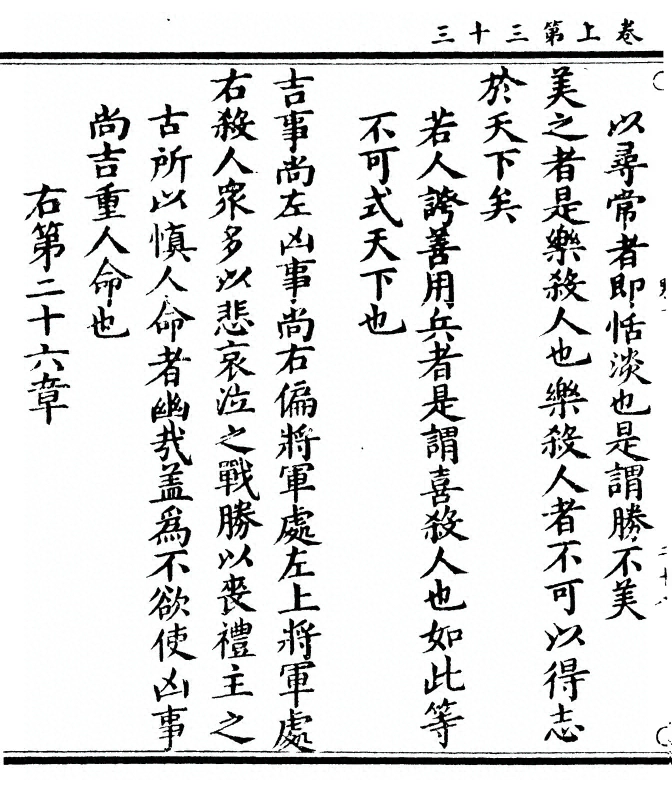 卷上第三十三
以尋常者即恬淡也是謂勝不美
美之者是樂殺人也樂殺人者不可以得志
於天下矣
若人誇善用兵者是謂喜殺人也如此等
不可式天下也
吉事尚左凶事尚右偏將軍處左上將軍處
右殺人衆多以悲哀泣之戰勝以喪禮主之
古所以慎人命者幽哉盖爲不欲使凶事
尚吉重人命也
右第二十六章